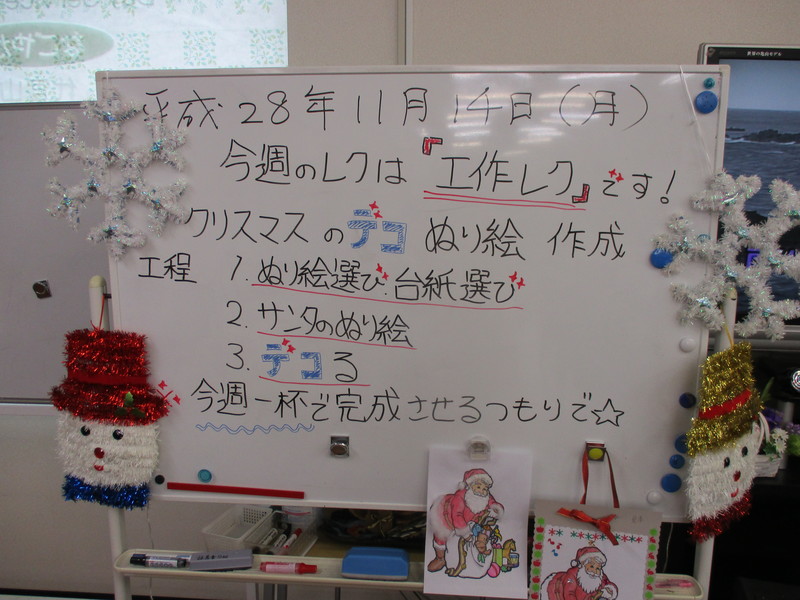 平成28年11月14日(月)
今週のレクは『工作レク』です!
クリスマスのデコぬり絵 作成
工程 1.ぬり絵選び.台紙選び
2.サンタのぬり絵
3.デコる
※今週一杯で完成させるつもりで☆